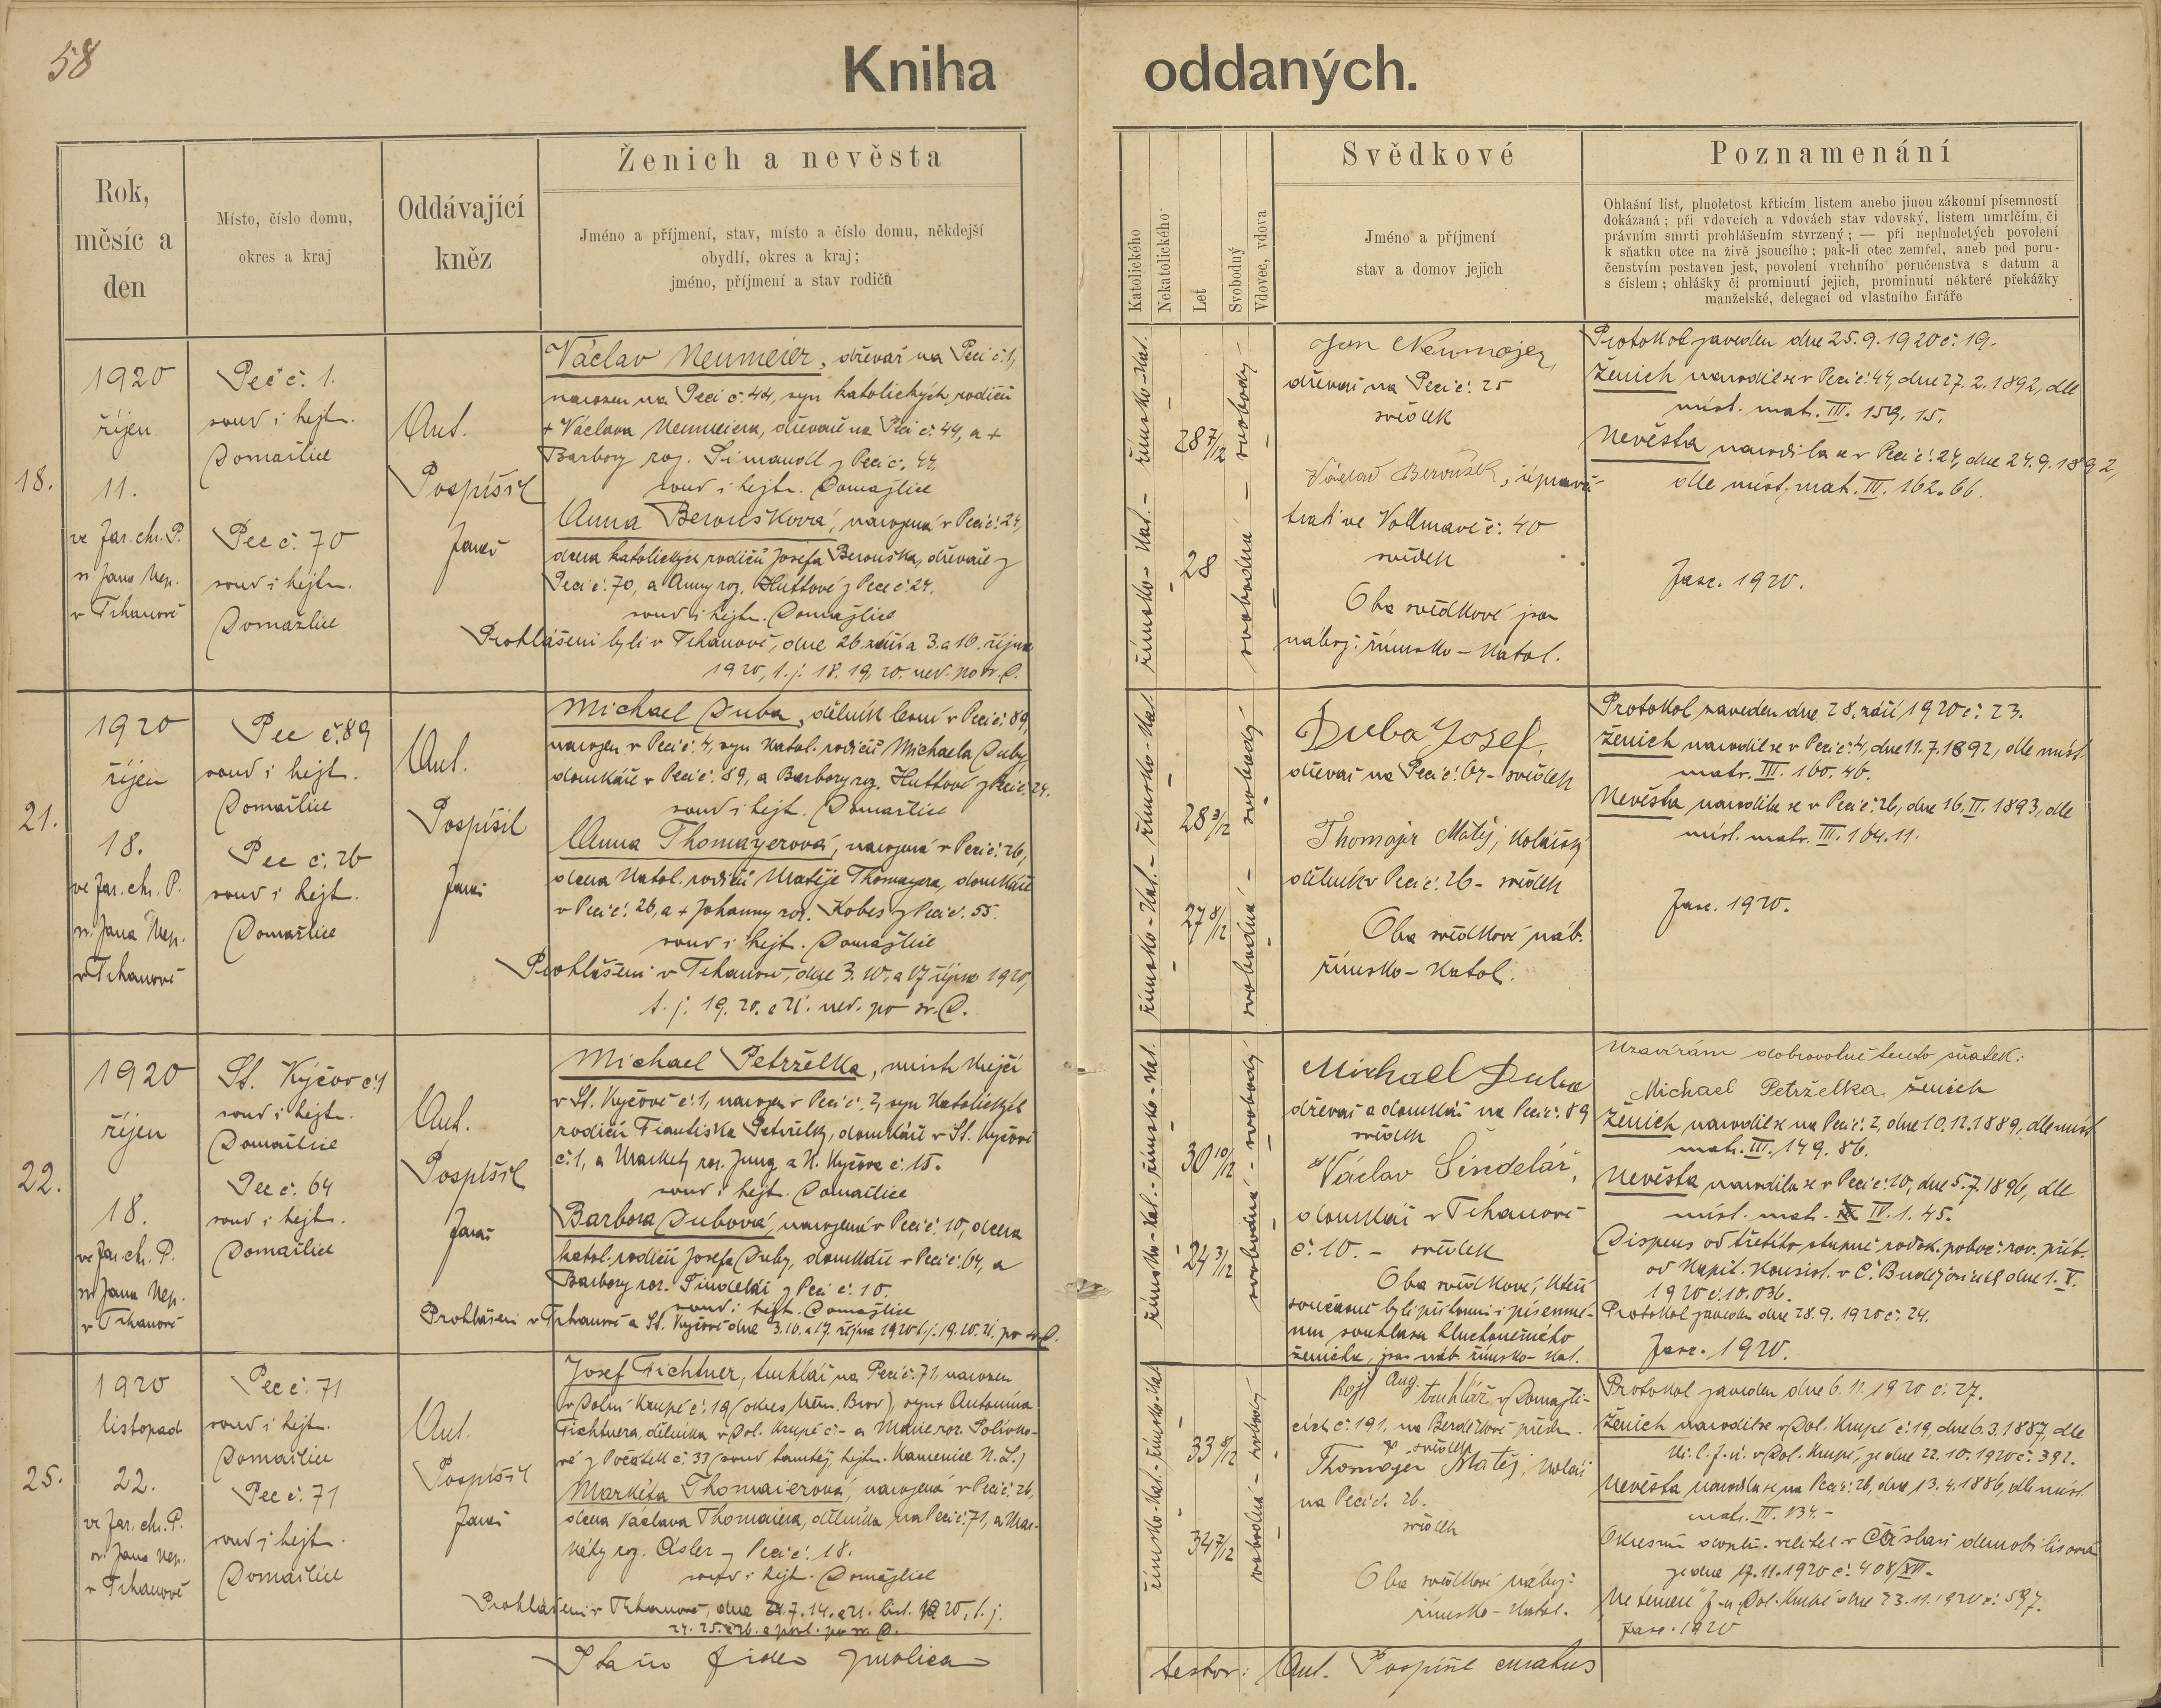 58
Kniha oddaných.
Rok,
měsíc a
den
Místo, číslo domu,
okres a kraj
Oddávající
kněz
Ženich a nevěsta
Jméno a příjmení, stav, místo a číslo domu, někdejší
obydlí, okres a kraj;
jméno, příjmení a stav rodičů
Katolického
Nekatolického
Let
Svobodný
Vdovec, vdova
Svědkové
Jméno a příjmení
stav a domov jejich
Poznamenání
Ohlašní list, plnoletost křticím listem anebo jinou zákonní písemností
dokázaná; při vdovcích a vdovách stav vdovský, listem umrlčím, či
právním smrti prohlášením stvrzený; — při neplnoletých povolení
k sňatku otce na živě jsoucího; pak-li otec zemřel, aneb pod poru-
čenstvím postaven jest, povolení vrchního poručenstva s datum a
s číslem; ohlášky či prominutí jejich, prominutí některé překážky
manželské, delegací od vlastního faráře
18.
1920
říjen
11.
ve far. chr. P.
sv. Jana Nep.
v Trhanově
Peč č. 1.
soud i hejt.
Domažlice
Pec č. 70
soud i hejtm.
Domažlice
Ant.
Pospíšil
farář
Václav Neumeier, dřevař na Peci č. 1,
narozen na Peci č. 44, syn katolických rodičů
+ Václava Neumeiera, dřevaře na Peci č. 44, a +
Barbory roz. Simandl z Peci č. 44.
soud i hejtm. Domažlice
Anna Beroušková, narozená v Peci č. 24,
dcera katolických rodičů Josefa Berouška, dřevaře z
Peci č. 70, a Anny roz. Huttové z Pece č. 24.
soud i hejtm. Domažlice
Prohlášeni byli v Trhanově, dne 26. září a 3. a 10. října
1920, t. j. 18. 19. 20. ned. po sv. D.
římsko-kat. - římsko-kat.
28 7/12
28
svobodná - svobodný
Jan Neumajer,
dřevař na Peci č. 25
svědek
Václav Beroušek,
trati ve Vollmavě č. 40
svědek
Oba svědkové jsou
nábož. římsko-katol.
Protokol zaveden dne 25. 9. 1920 č. 19.
Ženich narodil se v Peci č. 44, dne 27. 2. 1892, dle
míst. mat. III. 159. 15.
Nevěsta narodila se v Peci č. 24, dne 24. 9. 1892,
dle míst. mat. III. 162. 66.
Fasc. 1920.
21.
1920
říjen
18.
ve far. chr. P.
sv. Jana Nep.
v Trhanově
Pec č. 89
soud i hejt.
Domažlice
Pec č. 26
soud i hejt.
Domažlice
Ant.
Pospíšil
farář
Michael Duba, dělník lesní v Peci č. 89,
narozen v Peci č. 4, syn katol. rodičů Michaela Duby,
domkáře v Peci č. 89, a Barbory roz. Huttové z Peci č. 24.
soud i hejt. Domažlice
Anna Thomayerová, narozená v Peci č. 26,
dcera katol. rodičů Matěje Thomayera, domkáře
v Peci č. 26, a + Johanny roz. Kobes z Peci č. 55.
soud i hejt. Domažlice
Prohlášeni v Trhanově, dne 3. 10. a 17. října 1920,
t. j. 19. 20. a 21. ned. po sv. D.
římsko-kat. - římsko-kat.
28 3/12
27 8/12
svobodná - svobodný
Duba Josef,
dřevař na Peci č. 64 - svědek
Thomajr Matěj, kolářský
dělník v Peci č. 26 - svědek
Oba svědkové náb.
římsko-katol.
Protokol zaveden dne 28. září 1920 č. 23.
Ženich narodil se v Peci č. 4, dne 11. 7. 1892, dle míst.
matr. III. 160. 46.
Nevěsta narodila se v Peci č. 26, dne 16. II. 1893, dle
míst. matr. III. 164. 11.
Fasc. 1920.
22.
1920
říjen
18.
ve far. ch. P.
sv. Jana Nep.
v Trhanově
St. Kýčov č. 1
soud i hejtm.
Domažlice
Pec č. 64
soud i hejtm.
Domažlice
Ant.
Pospíšil
farář
Michael Petrželka, mistr krejčí
v St. Kyčově č. 1, narozen v Peci č. 2, syn katolických
rodičů Františka Petrželky, domkáře v St. Kyčově
č. 1, a Markéty roz. Jung z N. Kyčova č. 15.
soud i hejt. Domažlice
Barbora Dubová, narozená v Peci č. 10, dcera
katol. rodičů Josefa Duby, domkáře v Peci č. 64, a
Barbory roz. Šindelář z Peci č. 10.
soud i hejt. Domažlice
Prohlášeni v Trhanově a St. Kyčově dne 3. 10. a 17. října 1920 t. j. 19. 20. 21. po sv. D.
římsko-kat. - římsko-kat.
30 10/12
24 3/12
svobodná - svobodný
Michael Duba
dřevař a domkář na Peci č. 89
svědek
Václav Šindelář,
domkář v Trhanově
č. 10. - svědek
Oba svědkové, kteří
současně byli přítomni i písemné-
mu souhlasu hluchoněmého
ženicha, jsou náb. římsko-kat.
Uzavírám dobrovolně tento sňatek:
Michael Petrželka ženich
Ženich narodil se na Peci č. 2, dne 10. 12. 1889, dle míst.
mat. III. 149. 86.
Nevěsta narodila se v Peci č. 10, dne 5. 7. 1896, dle
míst. mat. IV. 1. 45.
Dispens od třetího stupně rodok. poboč. rov. příb.
od kapit. konsist. v Č. Budějovicích dne 1. X.
1920 č. 10.036.
Protokol zaveden dne 28. 9. 1920 č. 24.
Fasc. 1920.
25.
1920
listopad
22.
ve far. ch. P.
sv. Jana Nep.
v Trhanově
Pec č. 71
soud i hejtm.
Domažlice
Pec č. 71
soud i hejtm.
Domažlice
Ant.
Pospíšil
farář
Josef Fichtner, truhlář na Peci č. 71, narozen
v Dolní Krupé č. 19 (okres Něm. Brod), syn + Antonína
Fichtnera, dělníka v Dol. Krupé č. - a Marie roz. Polívko-
vé z Počátek č. 33 (soud tamtéž, hejtm. Kamenice N. L.)
Markéta Thomaierová, narozená v Peci č. 26,
dcera Václava Thomaiera, dělníka na Peci č. 71, a Mar-
kéty roz. Osler z Peci č. 18.
soud i hejt. Domažlice
Prohlášeni v Trhanově, dne 7. 14. a 21. list. 1920, t. j.
24. 25. a 26. a posl. po sv. D.
římsko-kat. - římsko-kat.
33 8/12
34 7/12
svobodná - svobodný
Aug. truhlář v Domažli-
cích č. 191, na předm.
svědek
Thomayer Matěj, kolář
na Peci č. 26.
svědek
Oba svědkové nábož.
římsko-katol.
Protokol zaveden dne 6. 11. 1920 č. 27.
Ženich narodil se v Dol. Krupé č. 19, dne 6. 3. 1887, dle
k. l. f. ú. v Dol. Krupé, ze dne 22. 10. 1920 č. 392.
Nevěsta narodila se na Peci č. 26, dne 13. 4. 1886, dle míst.
mat. III. 134. -
Okresní doplň. velitel. v Čáslavi
ze dne 17. 11. 1920 č. 408/XII -
f. ú. Dol. Krupé dne 23. 11. 1920 č. 597.
Fasc. 1920
testor: Ant. Pospíšil curatus